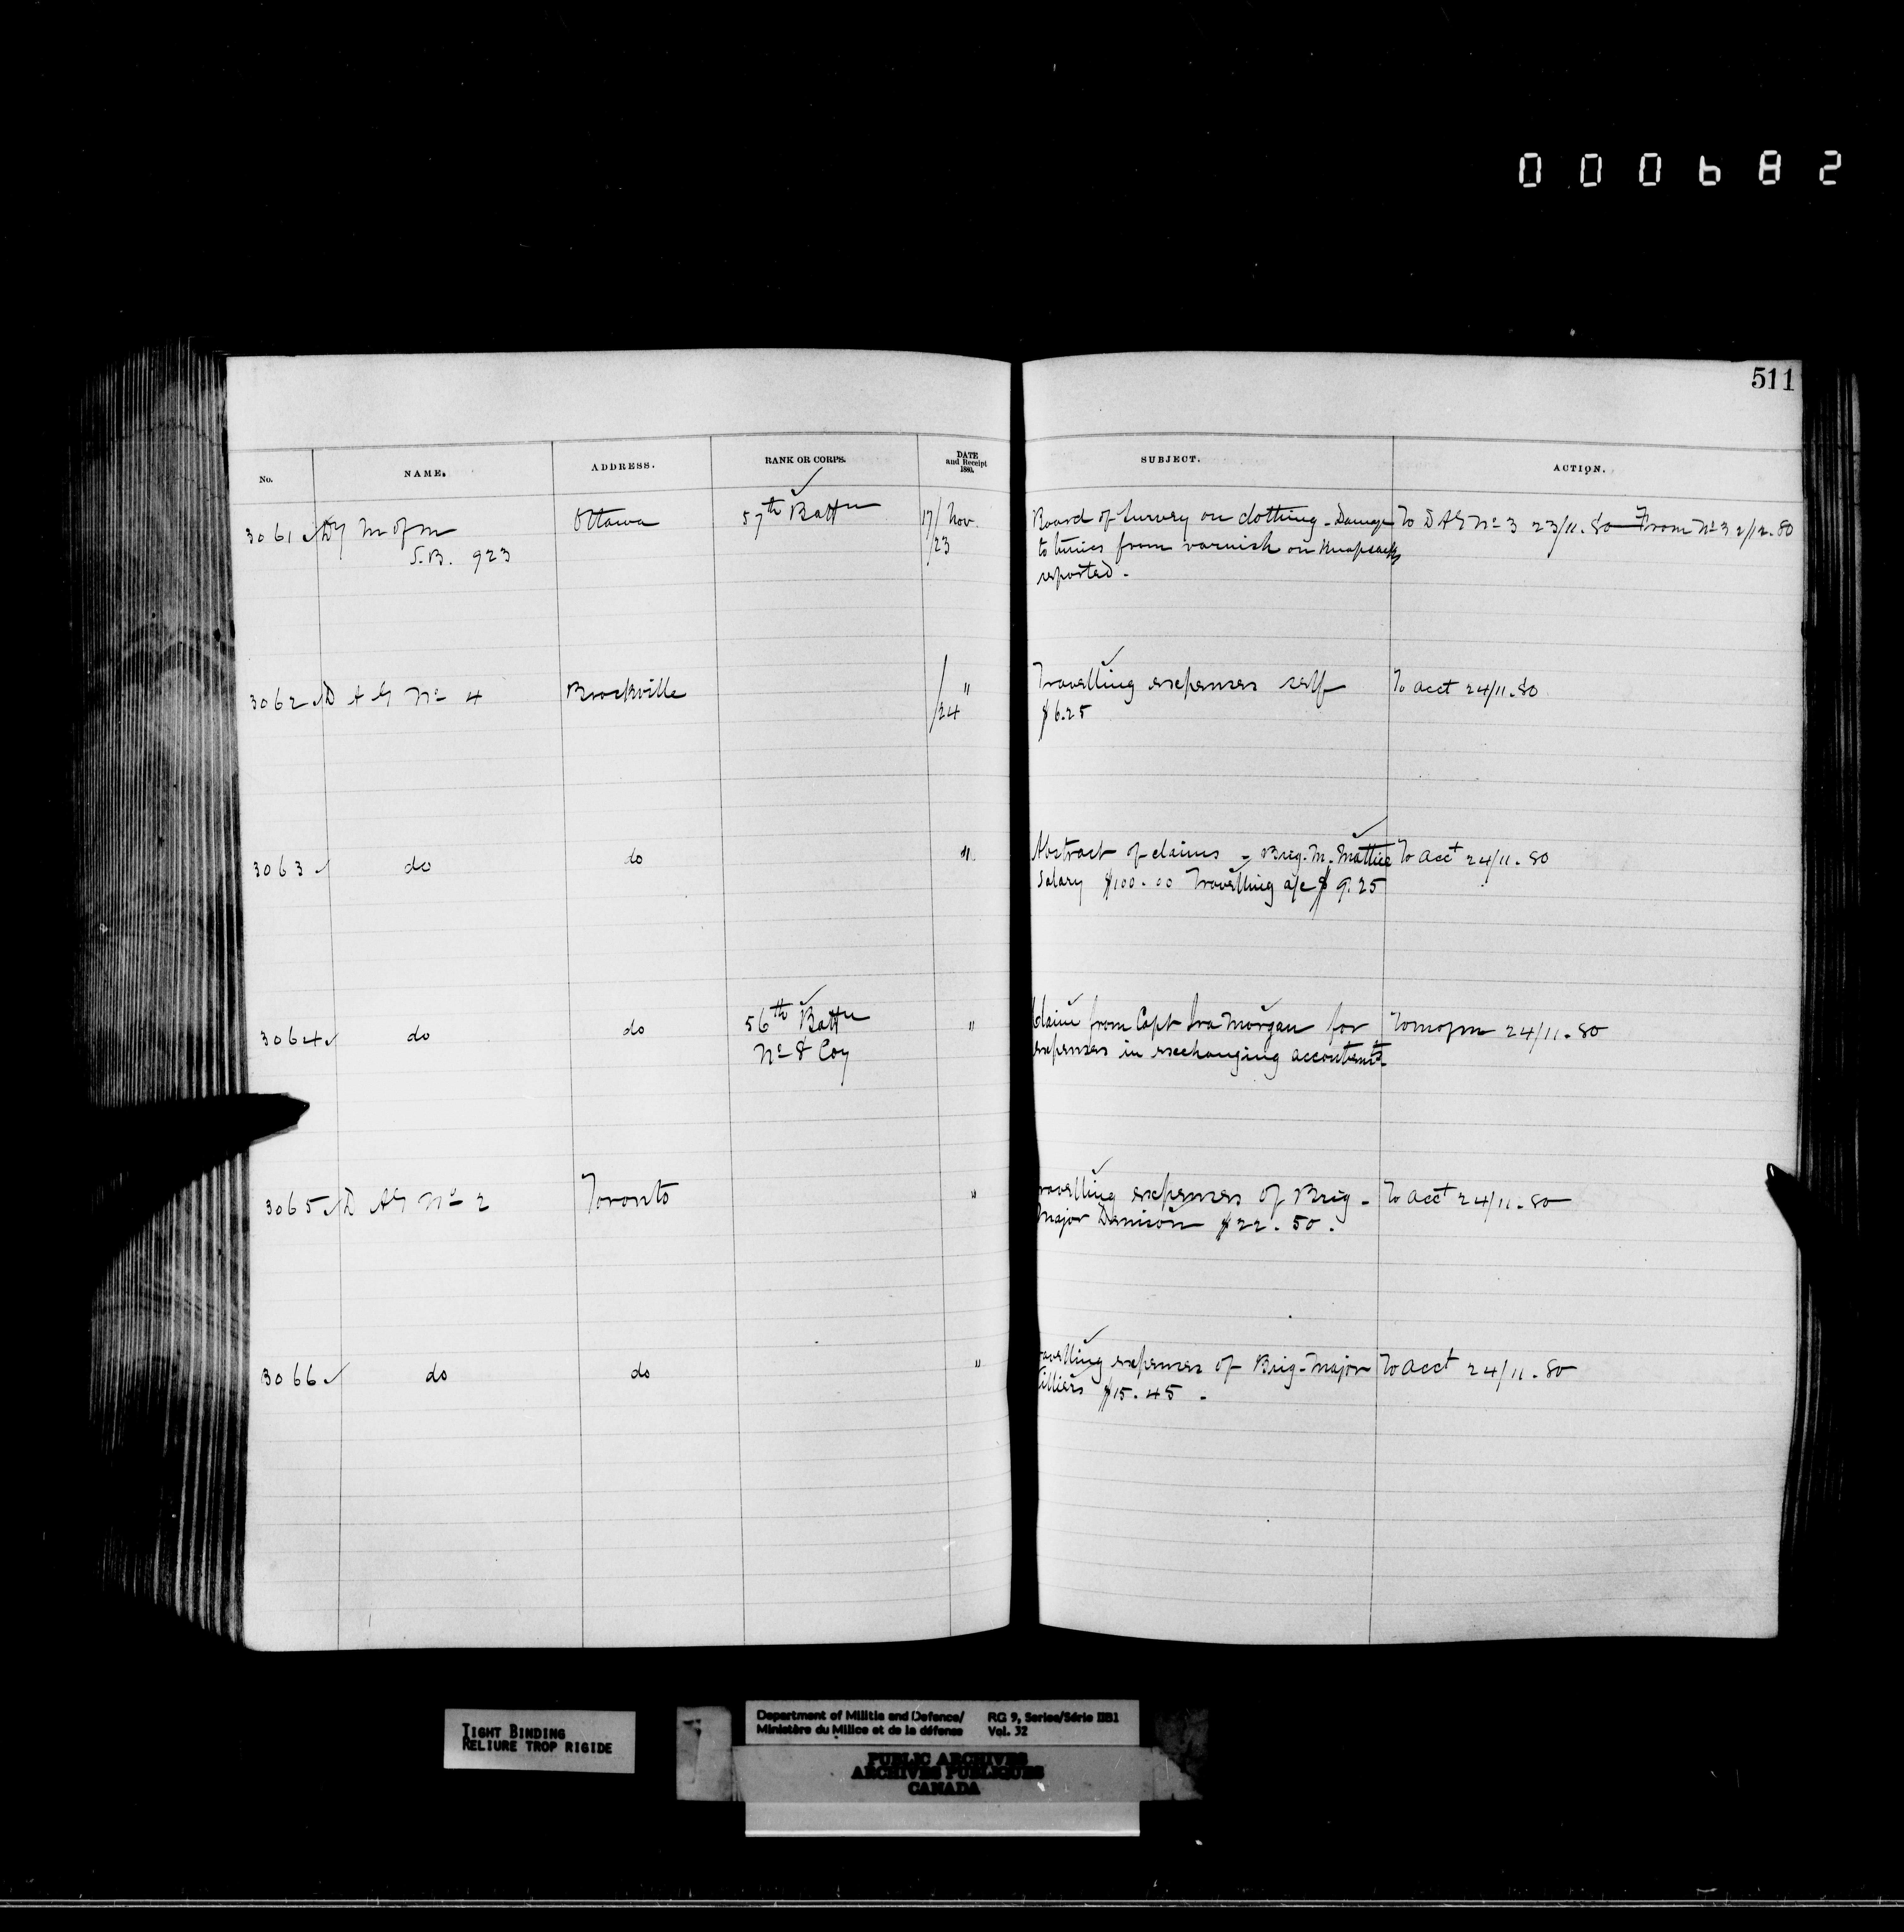 000682
511
No. NAME. ADDRESS. RANK OR CORPS. DATE and Receipt 1880. SUBJECT. ACTION.
3061 Dy M of M Ottawa 57th Battn 17/Nov. Board of Survey on clothing - Damage To DAG No 3 23/11.80 - From No 3 2/12.80
S.B. 923 /23 to tunics from varnish on Knapsacks
reported.
3062 D A G No 4 Brockville /" Travelling expenses self To acct 24/11.80
/24 $6.25
3063 do do " Abstract of claims - Brig. M. Mattice To Acct 24/11.80
Salary $100.00 Travelling a/c $9.25
3064 do do 56th Battn " Claim from Capt Ira Morgan for To M of M 24/11.80
No 8 Coy expenses in exchanging accoutremts.
3065 D AG No 2 Toronto " ravelling expenses of Brig - To Acct 24/11.80
Major Denison $22.50.
3066 do do " avelling expenses of Brig-Major To Acct 24/11.80
illiers $15.45 -
TIGHT BINDING
RELIURE TROP RIGIDE
Department of Militia and Defence/ RG 9, Series/Série IIB1
Ministère du Milice et de la défense Vol. 32
PUBLIC ARCHIVES
ARCHIVES PUBLIQUES
CANADA